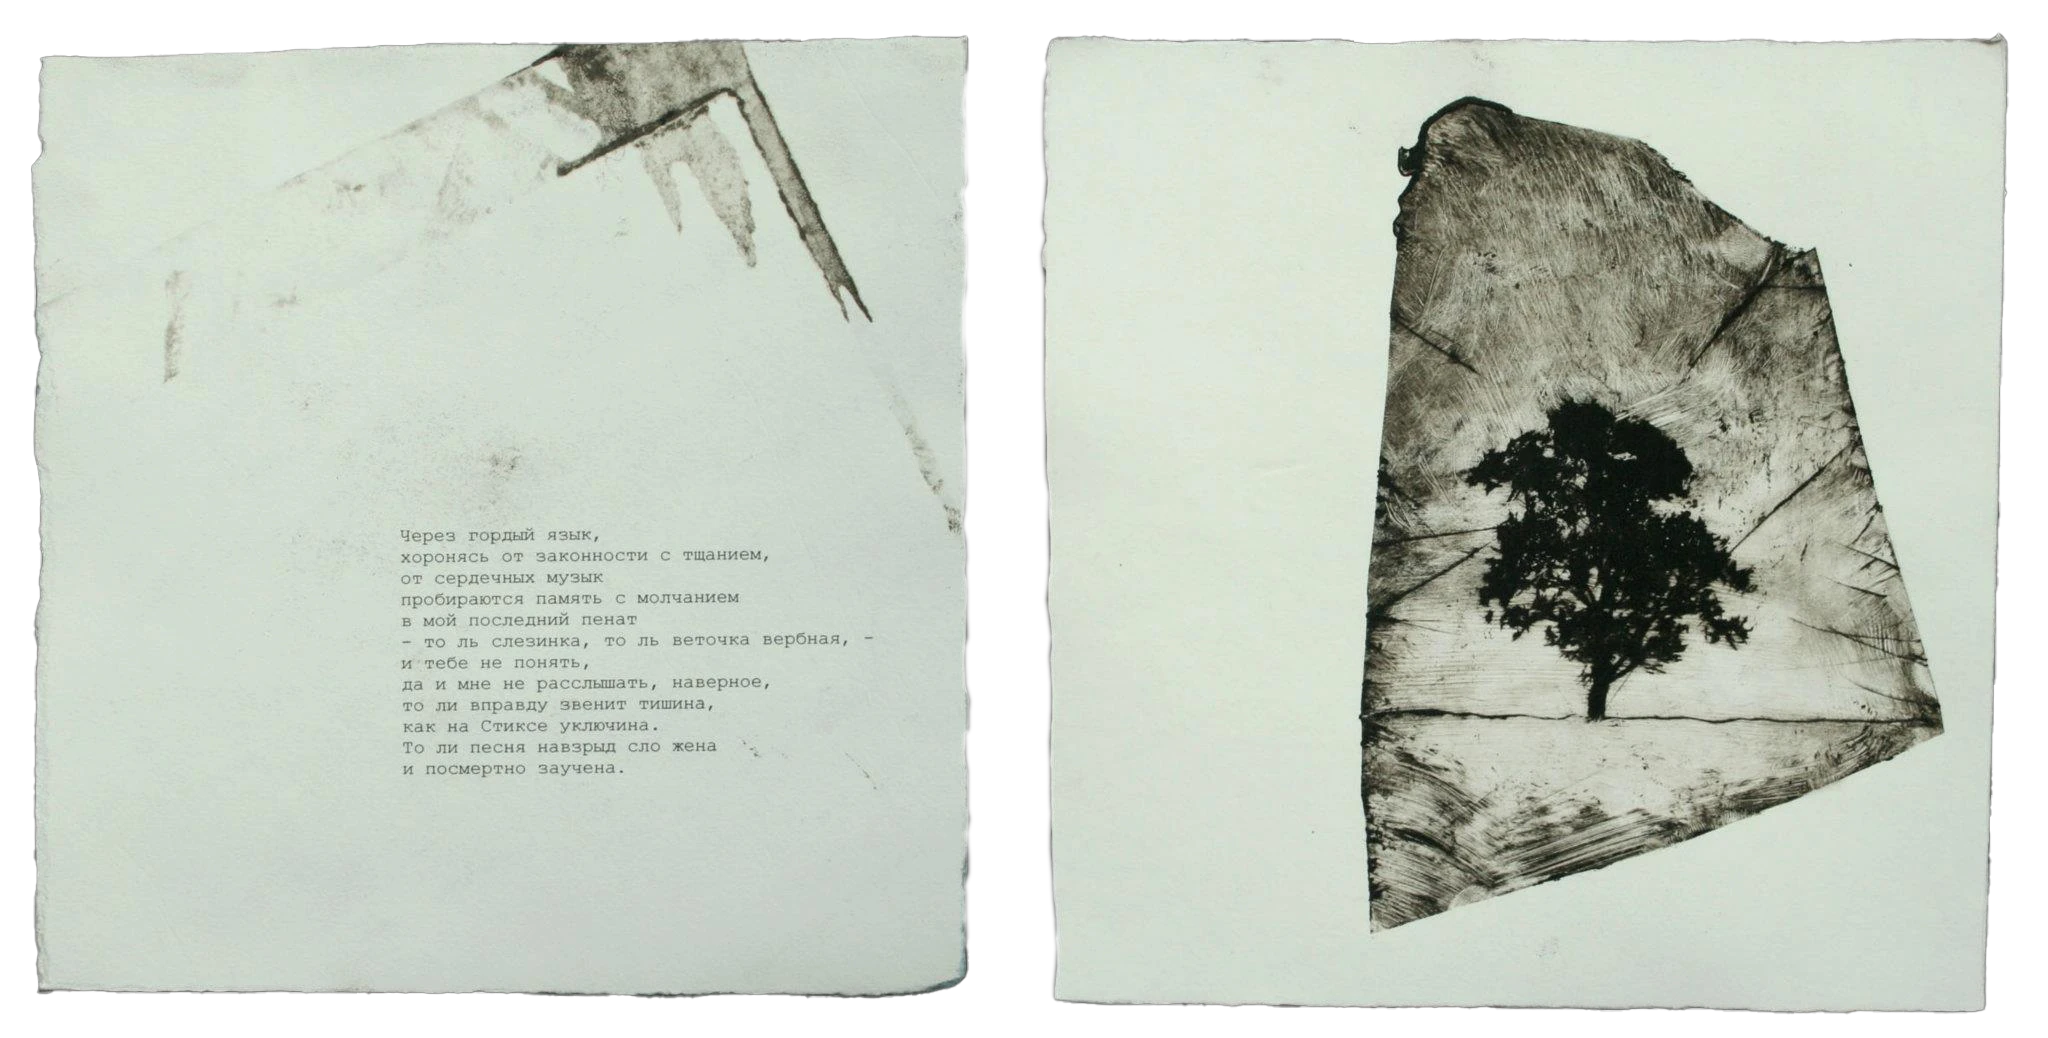 Через гордый язык,
хоронясь от законности с тщанием,
от сердечных музык
пробираются память с молчанием
в мой последний пенат
- то ль слезинка, то ль веточка вербная, -
и тебе не понять,
да и мне не расслышать, наверное,
то ли вправду звенит тишина,
как на Стиксе уключина.
То ли песня навзрыд сло жена
и посмертно заучена.